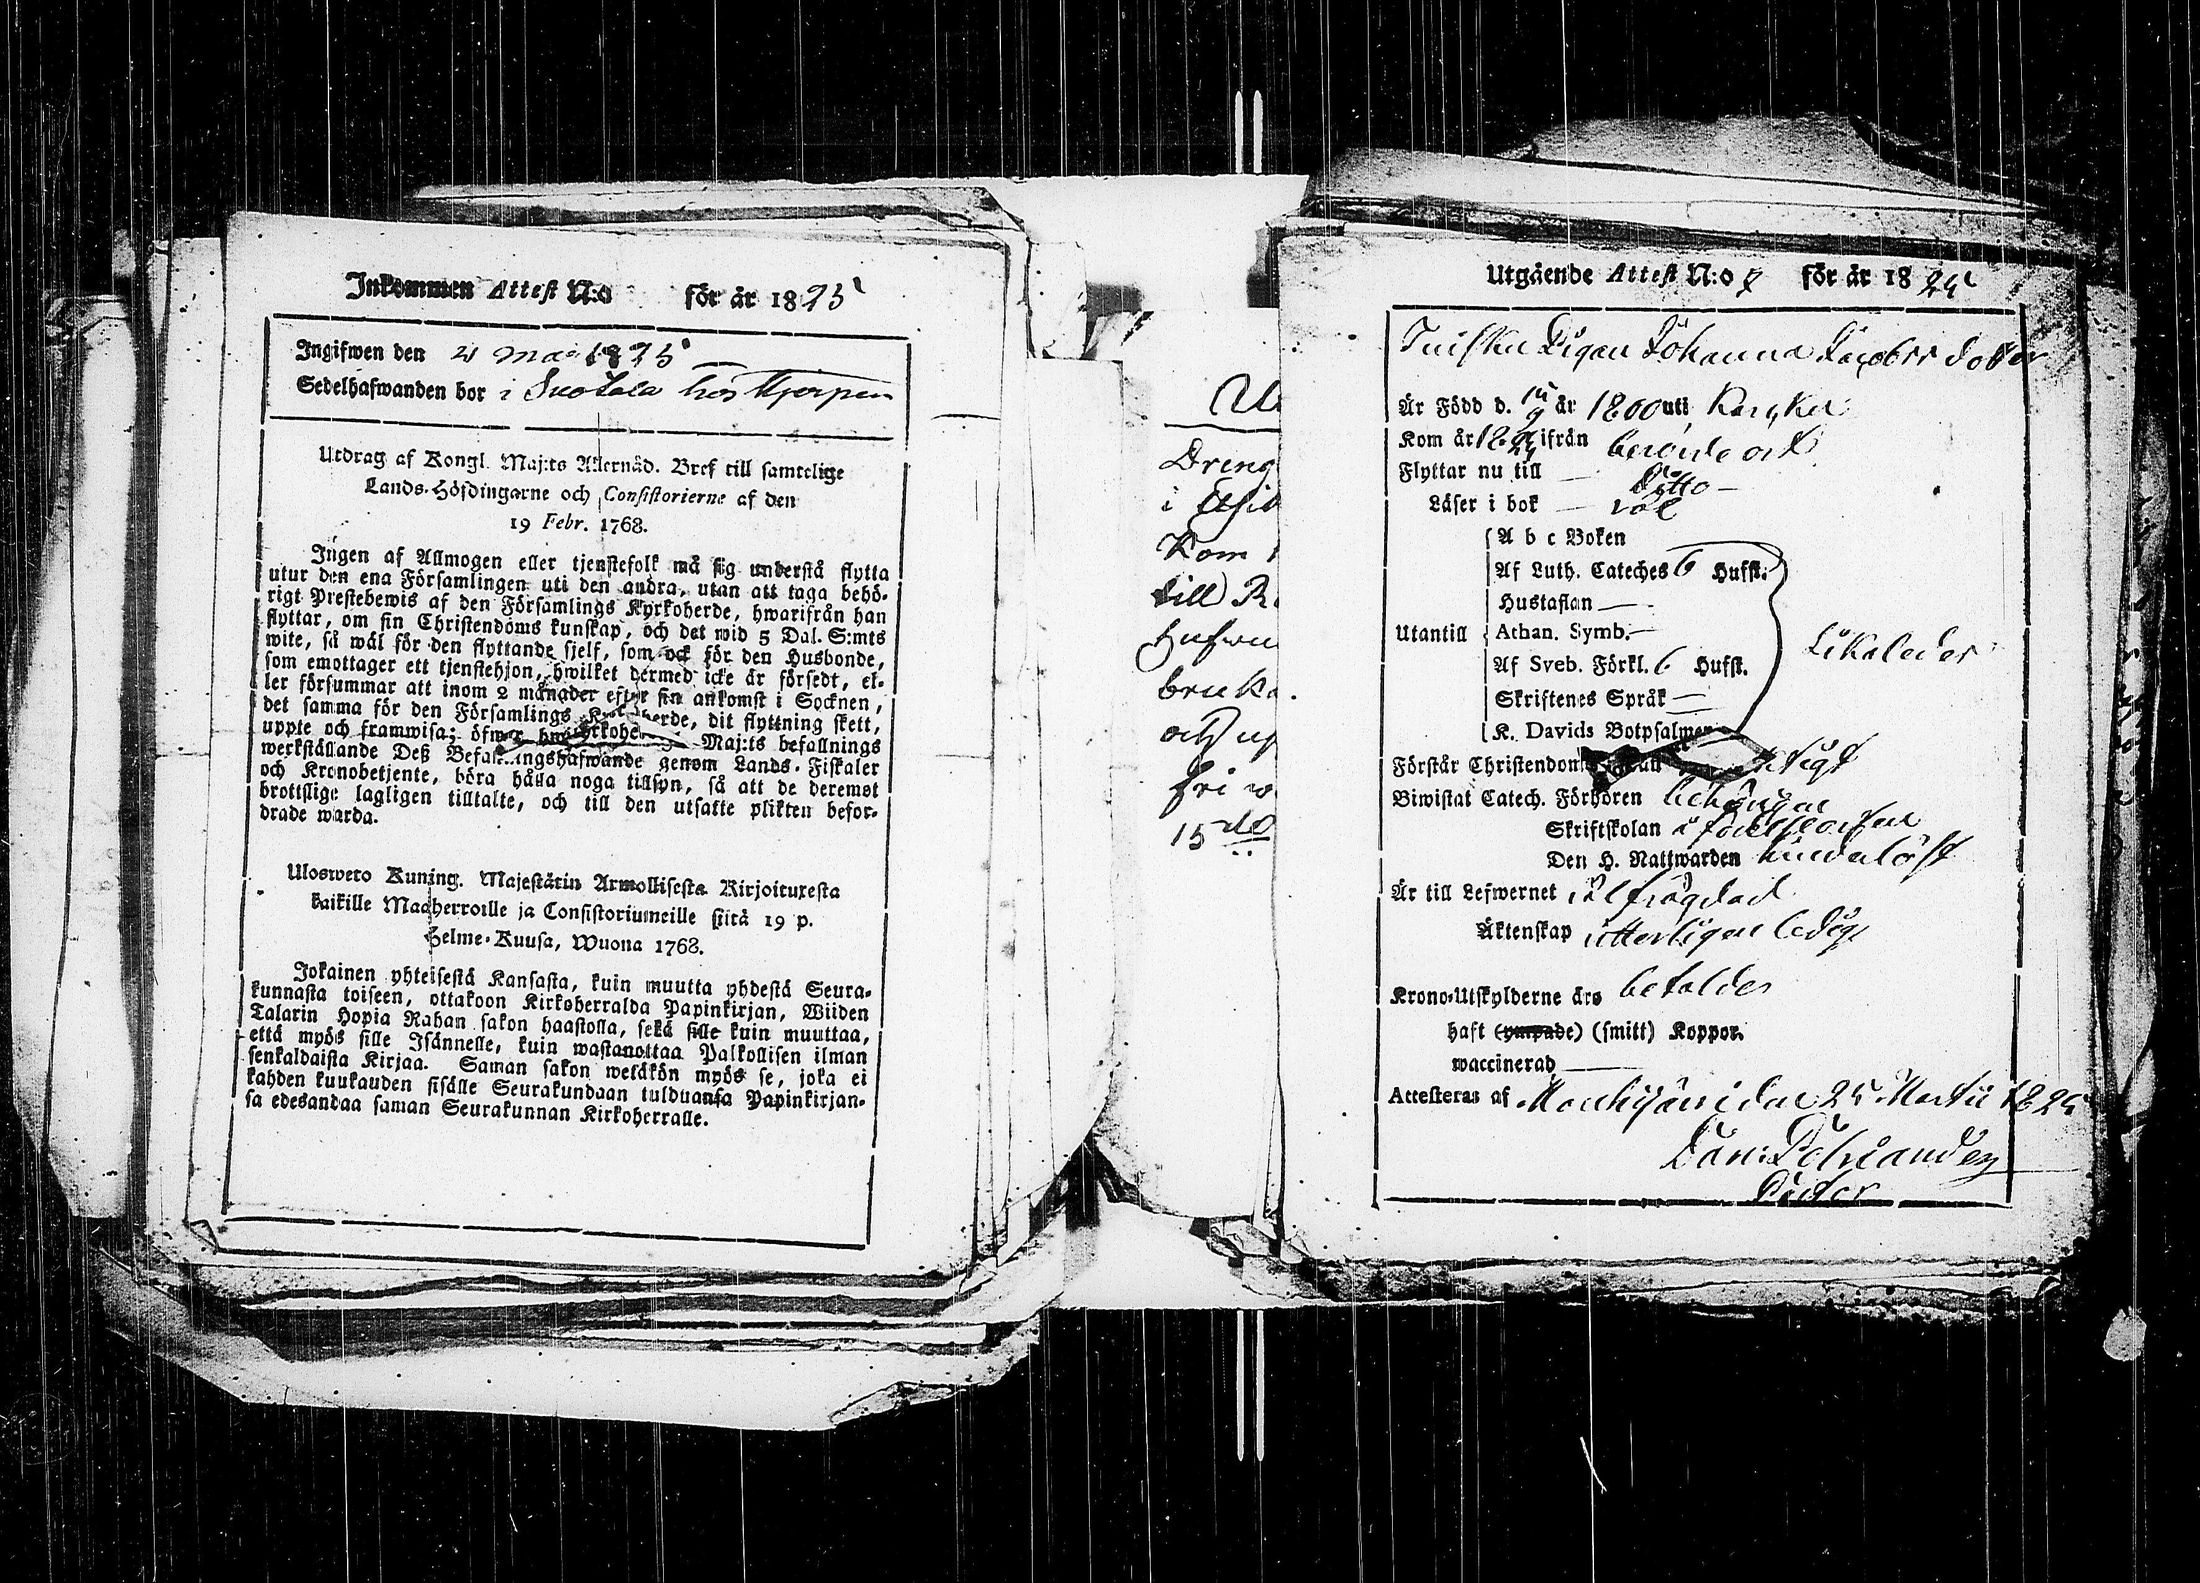 Inkommen Attest N:o för år 1825
Ingifwen den 21 maj 1825
Sedelhafwanden bor i Suotala hos
Utdrag af Kongl. Maj:ts Allernåd. Bref till samtelige
Lands-Höfdingarne och Consistorierne af den
19 Febr. 1768.
Ingen af Allmogen eller tjenstefolk må sig understå flytta
utur den ena Församlingen uti den andra, utan att taga behö-
rigt Prestebewis af den Församlings Kyrkoherde, hwarifrån han
flyttar, om sin Christendoms kunskap, och det wid 5 Dal. S:mts
wite, så wäl för den flyttande sjelf, som ock för den Husbonde,
som emottager ett tjenstehjon, hwilket dermed icke är försedt, el-
ler försummar att inom 2 månader efter sin ankomst i Socknen,
det samma för den Församlings Kyrkoherde, dit flyttning skett,
uppte och framwisa; öfwer Maj:ts befallnings
werkställande Deß Befallningshafwande genom Lands-Fiskaler
och Kronobetjente, böra hålla noga tillsyn, så att de deremot
brottslige lagligen tilltalte, och till den utsatte plikten befor-
drade warda.
Ulosweto Kuning. Majestätin Armollisesta Kirjoituxesta
kaikille Maaherroille ja Consistoriumeille siitä 19 p.
Helme-Kuusa, Wuona 1768.
Jokainen yhteisestä Kansasta, kuin muutta yhdestä Seura-
kunnasta toiseen, ottakoon Kirkoherralda Papinkirjan, Wiiden
Talarin Hopia Rahan sakon haastolla, sekä sille kuin muuttaa,
että myös sille Isännelle, kuin wastanottaa Palkollisen ilman
senkaldaista Kirjaa. Saman sakon wetäkön myös se, joka ei
kahden kuukauden sisälle Seurakundaan tulduansa Papinkirjan-
sa edesandaa saman Seurakunnan Kirkoherralle.
Dreng
i
Kom
till
Hufwu
bruka
och
fri
15 do
Utgående Attest N:o för år 1825
Pigan Johanna Jacobsdotter
Är Född d. år 1800 uti
Kom år ifrån berörde ort
Flyttar nu till — Ditto —
Läser i bok — väl
A b c Boken
Af Luth. Cateches 6 Hufst.
Hustaflan —
Utantill Athan. Symb. —
Af Sveb. Förkl. 6 Hufst. Likaledes
Skriftenes Språk —
K. Davids Botpsalmer
Förstår Christendom
Biwistat Catech. Förhören behörigen
Skriftskolan
Den H. Nattwarden
Är till Lefwernet välfrägdad
Äktenskap ledig
Krono-Utskylderne äro betalde
haft (ympade) (smitt) Koppor.
waccinerad —
Attesteras af Mouhijärvi den 25 Martii 1825
Dan: